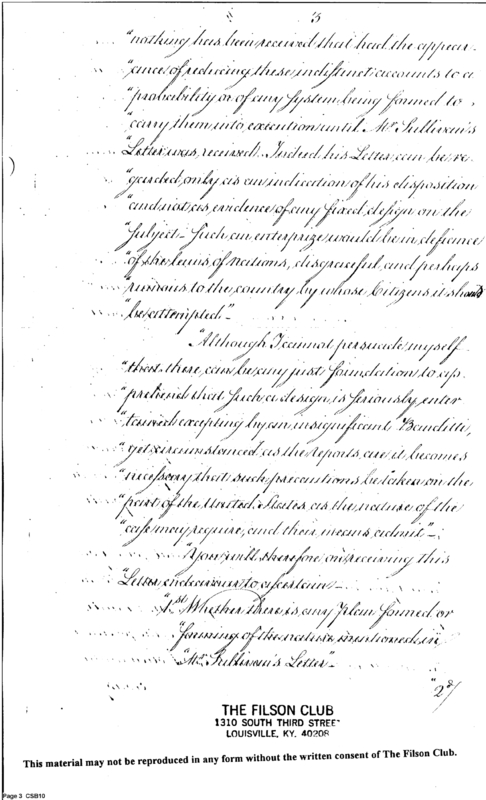 3
"nothing has been received that had the appear-
"ance of reducing these indistinct accounts to a
"probability or of any System being formed to
"carry them into execution until Mr Sullivan's
"Letter was received. Indeed his Letter can be re
"garded, only as an indication of his disposition
"and not as evidence of any fixed design on the
"Subject. Such an enterprize would be in defiance
"of the laws of Nations, disgraceful and perhaps
"ruinous to the country by whose Citizens it should
"be attempted"-
"Although I cannot persuade myself
"that there can be any just foundation to ap-
"prehend that such a design is seriously enter
"tained excepting by an insignificant Banditti,
"yet circumstanced as the Reports are it becomes
"necessary that such precautions be taken on the
"part of the United States as the nature of the
"case may require, and their means admit"-
"You will therefore on receiving this
"Letter endeavour to ascertain-
"1.st Whether there is any Plan formed or
"forming of the nature mentioned in
"Mr Sullivan's Letter"-
"2d/
THE FILSON CLUB
1310 SOUTH THIRD STREET
LOUISVILLE, KY. 40208
This material may not be reproduced in any form without the written consent of The Filson Club.
Page 3 CSB10